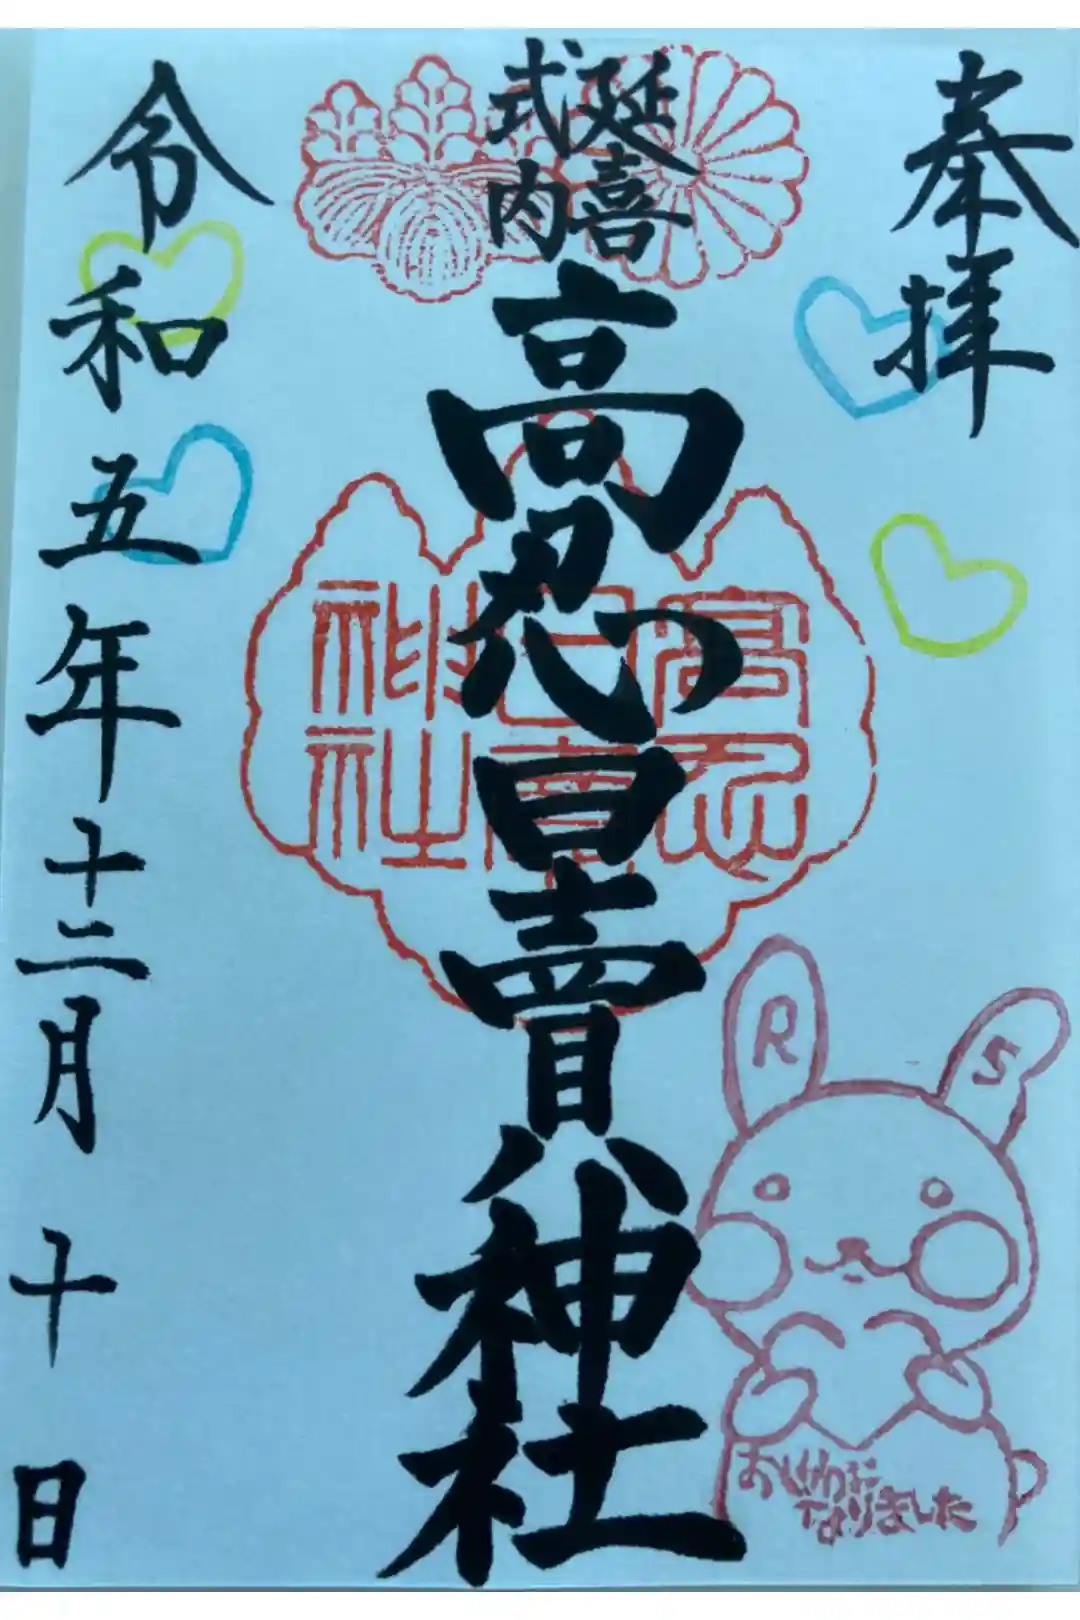 奉拝
延喜
式内
高忍日賣神社
高忍
日賣
神社
令和五年十二月十日
R5
おせわに
なりました